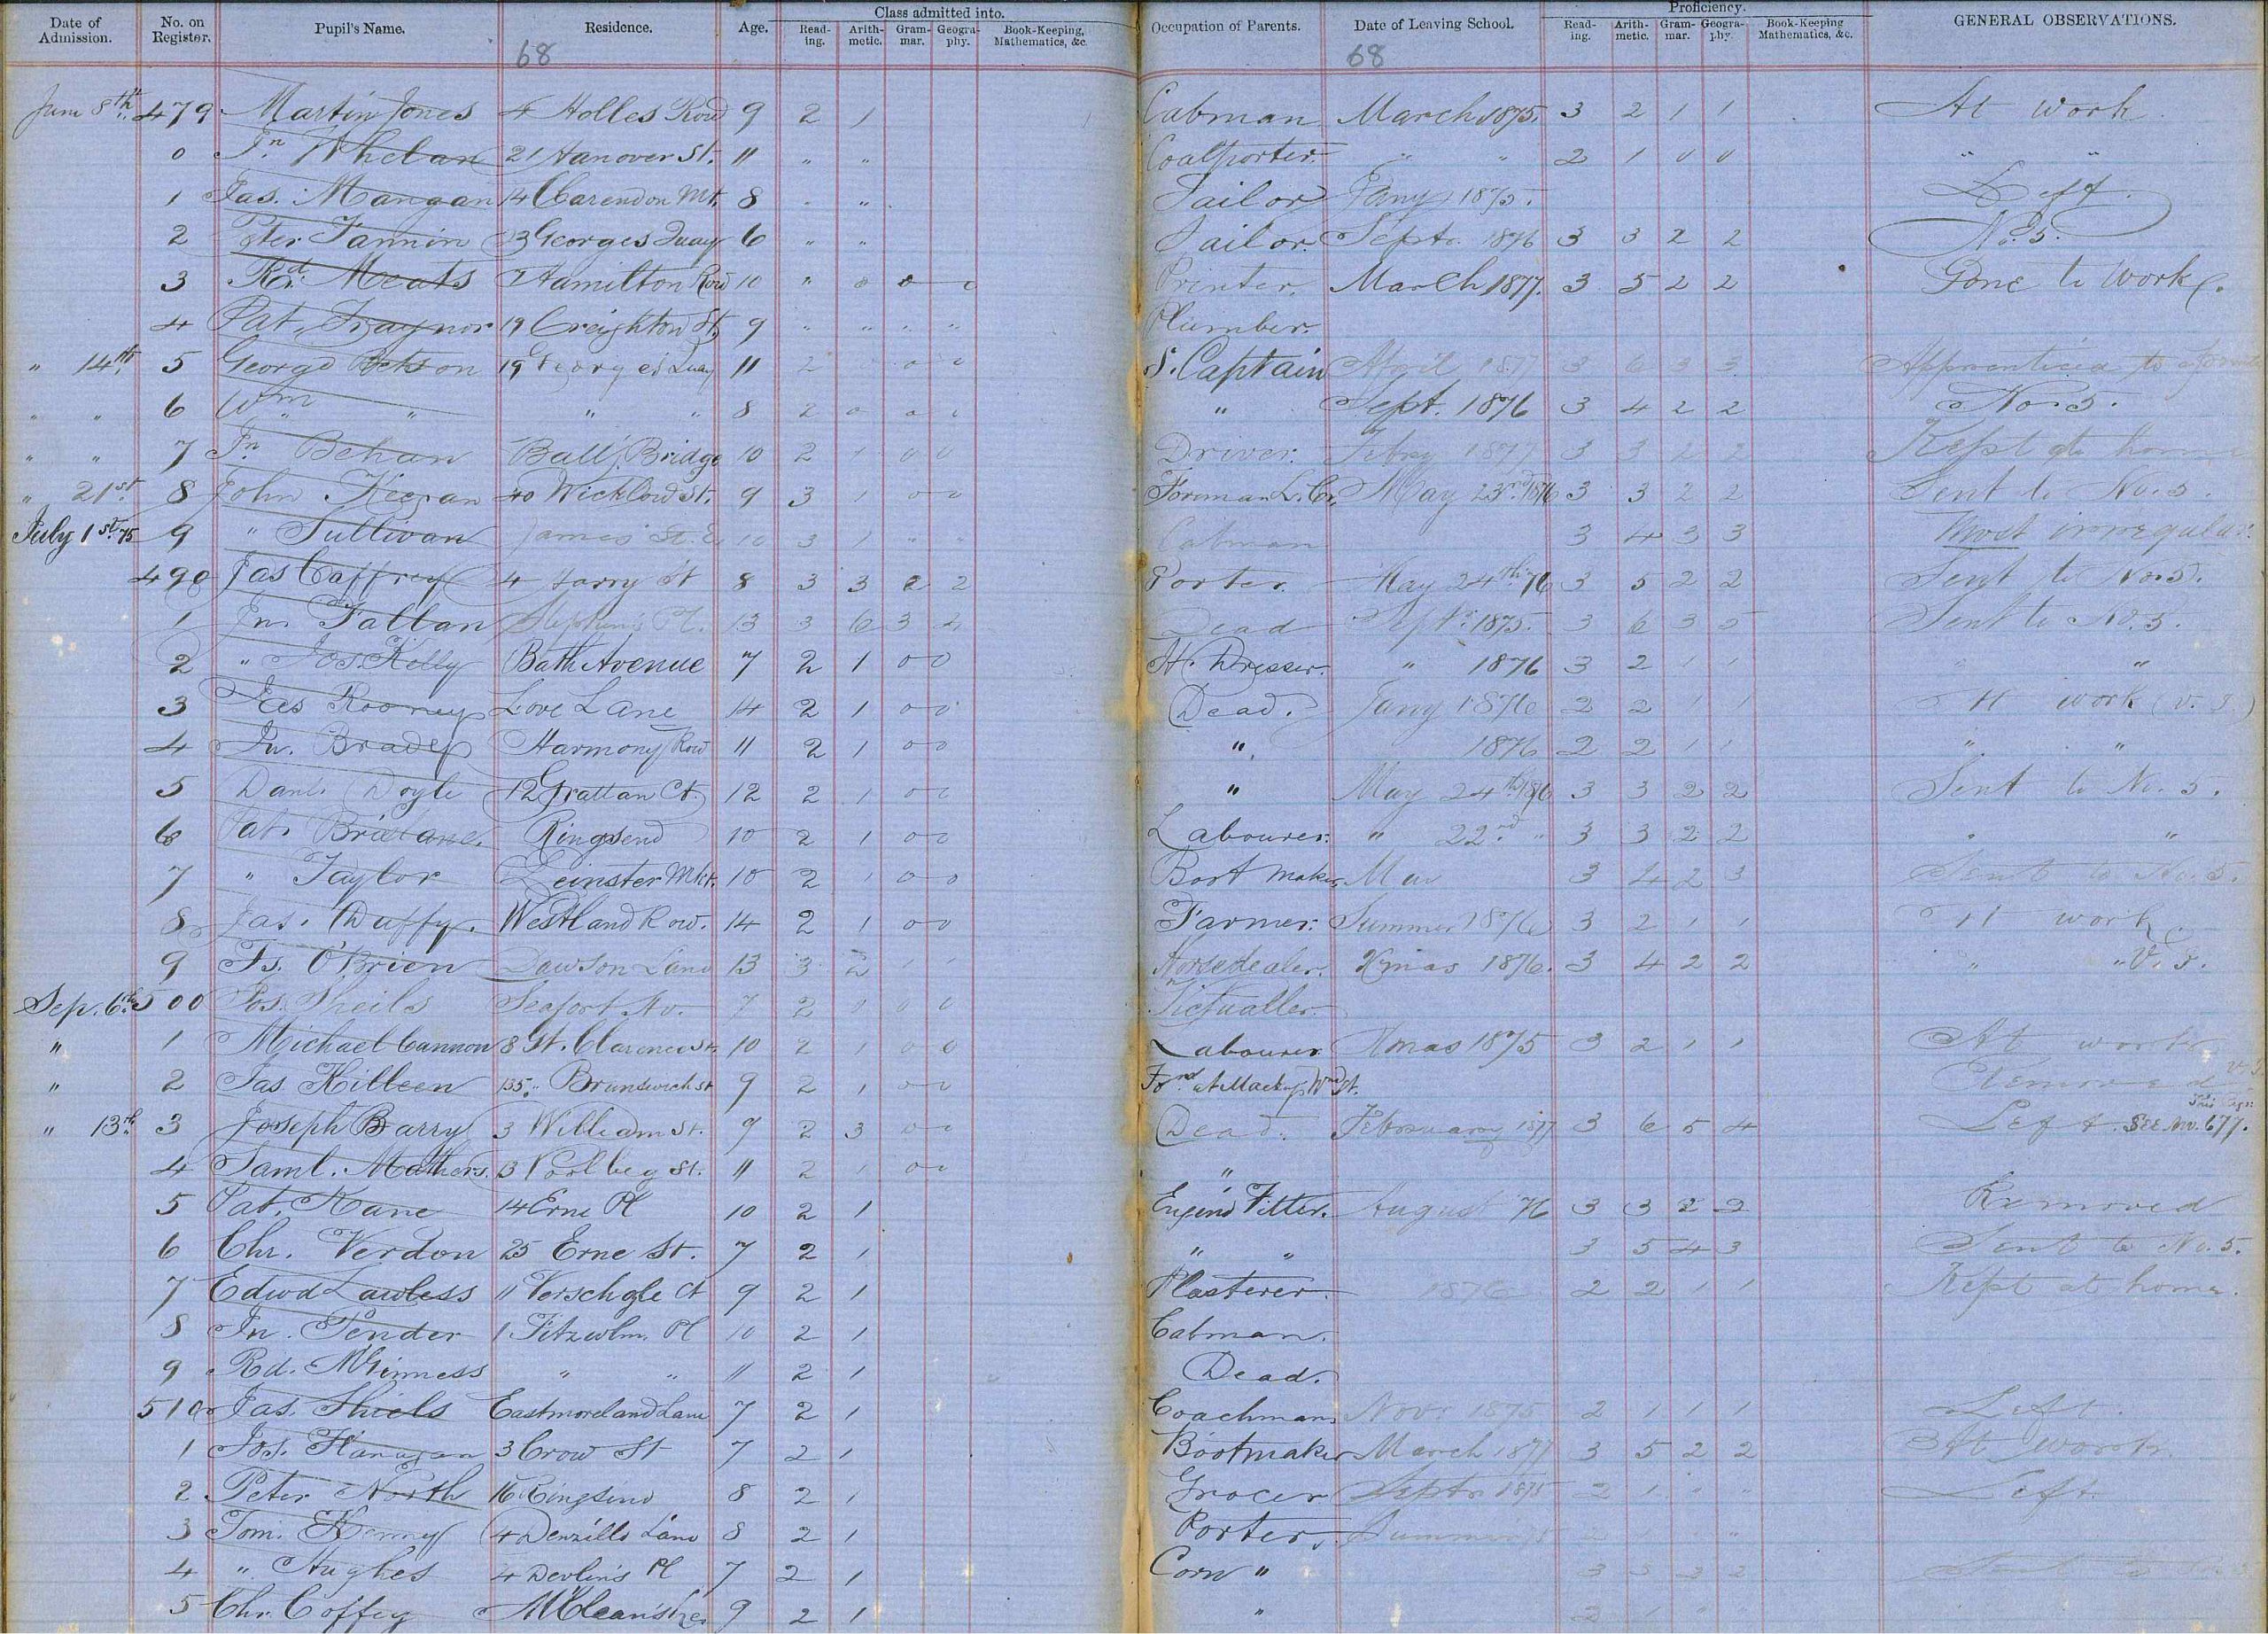 Date of Admission. No. on Register. Pupil's Name. Residence. Age. Class admitted into. Reading. Arithmetic. Grammar. Geography. Book-Keeping, Mathematics, &c. Occupation of Parents. Date of Leaving School. Proficiency. Reading. Arithmetic. Grammar. Geography. Book-Keeping Mathematics, &c. GENERAL OBSERVATIONS.
68 68
June 8th 479 Martin Jones 4 Holles Row 9 2 1 Cabman March 1875. 3 2 1 1 At work.
0 Jn Whelan 21 Hanover St. 11 " " Coalporter. " " 2 1 0 0 " "
1 Jas. Mangan 14 Clarendon Mt. 8 " " Tailor Jany 1875. Left.
2 Peter Fannin 13 Georges Quay 6 " " Sailor Septr. 1876 3 3 2 2 No. 5.
3 Rd. Meats 7 Hamilton Row 10 " 0 0 0 Printer. March 1877. 3 5 2 2 Gone to work.
4 Pat. Traynor 19 Creighton St. 9 " " " " Plumber.
" 14th 5 George 19 George's Quay 11 2 0 0 0 S. Captain April 1877 3 6 3 3 Apprenticed to
" " 6 Wm " " " 8 2 0 0 0 " Sept. 1876 3 4 2 2 No. 5.
" " 7 Jn Behan Balls Bridge 10 2 1 0 0 Driver. Febry 1877 3 3 2 2 Kept at home
" 21st 8 John Keegan 40 Wicklow St. 9 3 1 0 0 Foreman L. Co. May 23rd 1876 3 3 2 2 Sent to No. 5.
July 1st 75 9 " Sullivan James St. E 10 3 1 " " Cabman 3 4 3 3 Most irregular.
490 Jas Caffrey 4 Harry St 8 3 3 2 2 Porter. May 24th 76 3 5 2 2 Sent to No. 5.
1 Jn. Fallan Stephen's Pl. 13 3 6 3 4 Dead Septr. 1875. 3 6 3 5 Sent to No. 5.
2 " Jos. Kelly Bath Avenue 7 2 1 0 0 H. Dresser. " 1876 3 2 1 1 "
3 Rooney Love Lane 14 2 1 0 0 Dead. Jany 1876 2 2 1 1 " work (V. S)
4 Jn. Brady Harmony Row 11 2 1 0 0 " 1876 2 2 1 1 " "
5 Danl. Doyle 12 Grattan Ct. 12 2 1 0 0 " May 24th 1876 3 3 2 2 Sent to No. 5.
6 Pat. Ringsend 10 2 1 0 0 Labourer. " 22nd " 3 3 2 2 " "
7 " Taylor Leinster Mkt. 10 2 1 0 0 Boot Maker. 3 4 2 3 Sent to No. 5.
8 Jas. Duffy. Westland Row. 14 2 1 0 0 Farmer. Summer 1876 3 2 1 1 At work
9 Fs. O'Brien Dawson Lane 13 3 2 1 1 Horsedealer. Xmas 1876. 3 4 2 2 " " V. S.
Sep. 6th 500 Jos. Sheils Seafort Av. 7 2 0 0 0 Victualler.
" 1 Michael Cannon 8 Gt. Clarence St. 10 2 1 0 0 Labourer Xmas 1875 3 2 1 1 At work
" 2 Jas Killeen 135 Brunswick St 9 2 1 0 0 Removed
" 13th 3 Joseph Barry 3 William St. 9 2 3 0 0 Dead. February 1877 3 6 5 4 Left. SEE No. 677.
4 Saml. Mathers. 3 11 2 0 0 "
5 Pat. Kane 14 Erne Pl 10 2 1 Engine Fitter. August 76 3 3 2 2 Removed
6 Chr. Verdon 25 Erne St. 7 2 1 " " 3 5 4 3 Sent to No. 5.
7 Edwd Lawless 11 Verschoyle Ct 9 2 1 Plasterer. 1876 2 2 1 1 Kept at home.
8 Jn. Pender 1 Fitzwlm. Pl 10 2 1 Cabman.
9 Rd. McGinness " " 11 2 1 Dead.
510 Jas. Shiels Eastmoreland Lane 7 2 1 Coachman Novr. 1875 2 1 1 1 Left.
1 Jos. Flanagan 3 Crow St 7 2 1 Bootmaker March 1877 3 5 2 2 At work
2 Peter North 16 Ringsend 8 2 1 Grocer Septr. 1875 2 1 " " Left.
3 Tom. Kenny 4 Denzille Lane 8 2 1 Porter. 2
4 " Hughes 4 Devlin's Pl 7 2 1 Corn " 3 5 3 2 Sent to
5 Chr. Coffey 9 2 1 " 2 1